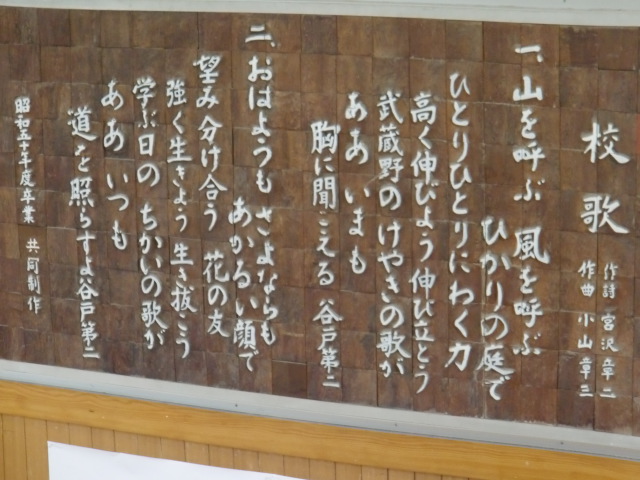 校歌
作詩 宮沢章二
作曲 小山章三
一、山を呼ぶ 風を呼ぶ
ひかりの庭で
ひとりひとりにわく力
高く伸びよう 伸び立とう
武蔵野の けやきの歌が
ああ いまも
胸に聞こえる 谷戸第二
二、おはようも さよならも
あかるい顔で
望み分け合う 花の友
強く生きよう 生き抜こう
学ぶ日の ちかいの歌が
ああ いつも
道を照らすよ 谷戸第二
昭和五十年度卒業 共同制作